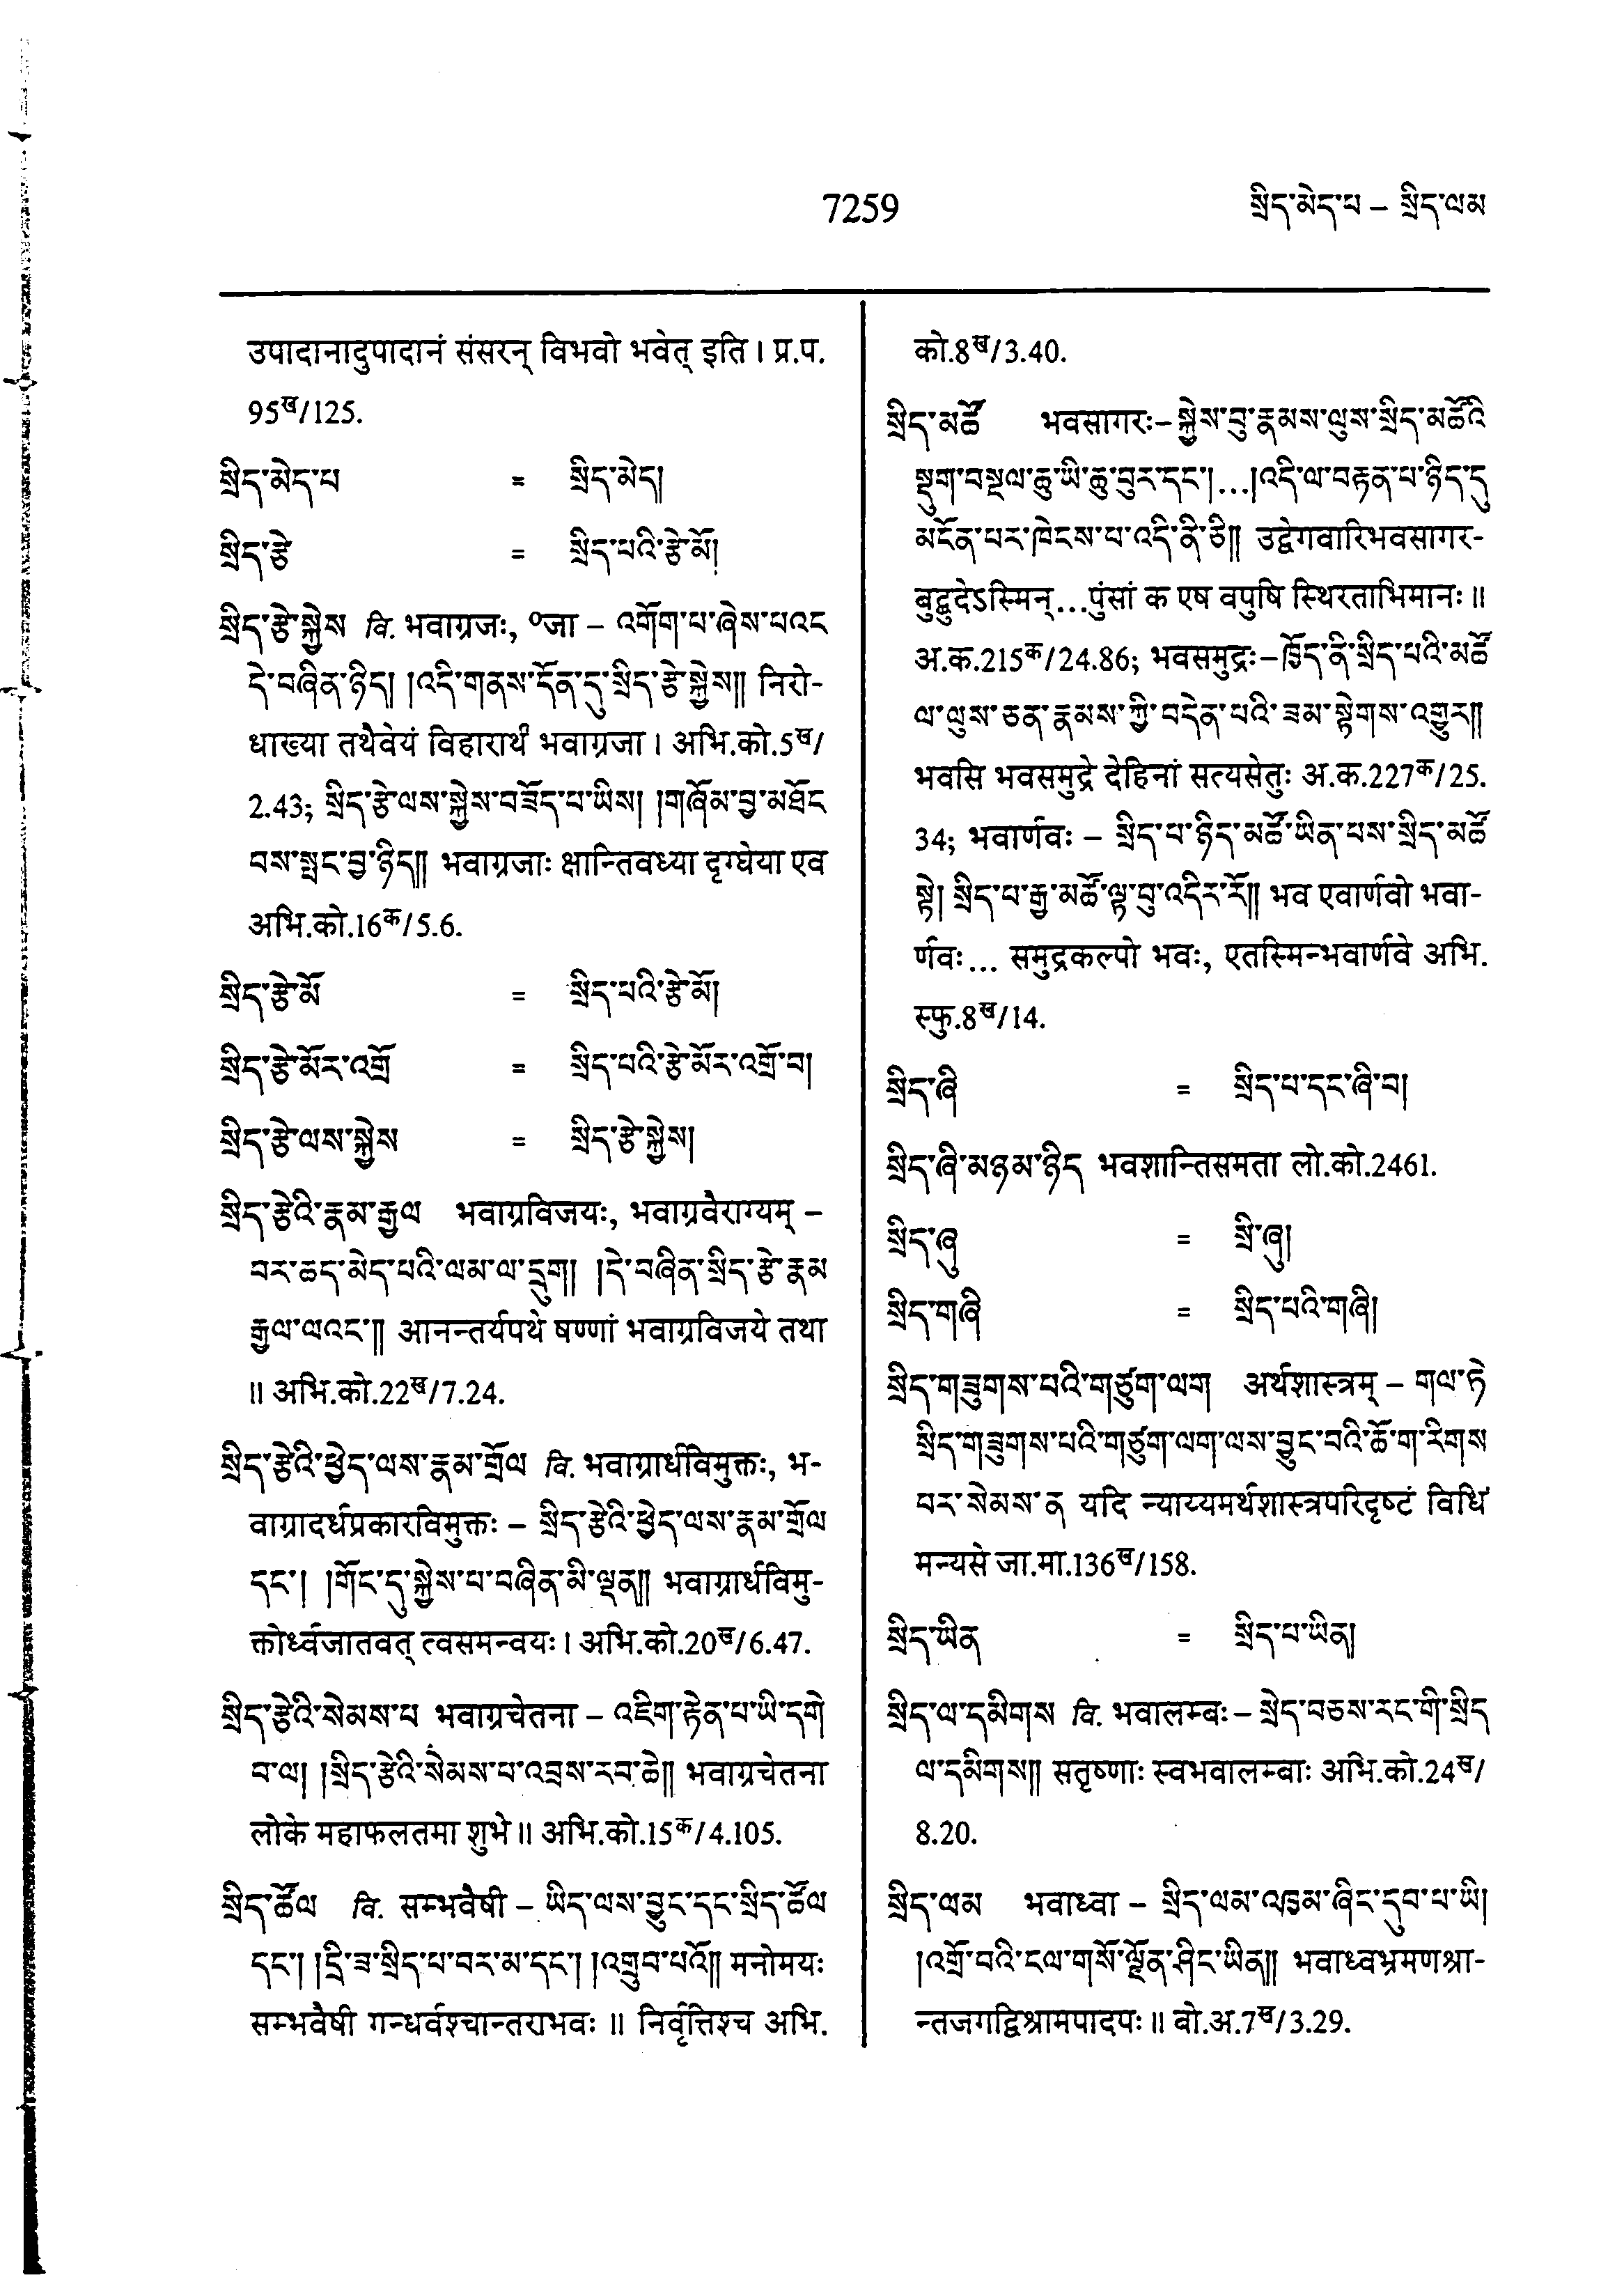 7259
སྲིད་མེད་པ – སྲིད་ལམ
उपादानादुपादानं संसरन् विभवो भवेत् इति । प्र.प.
95ख/125.
སྲིད་མེད་པ = སྲིད་མེད།
སྲིད་རྩེ = སྲིད་པའི་རྩེ་མོ།
སྲིད་རྩེ་སྐྱེས वि. भवाग्रजः, ०जा – འགོག་པ་ཞེས་པའང
དེ་བཞིན་ཉིད། །འདི་གནས་དོན་དུ་སྲིད་རྩེ་སྐྱེས།། निरो-
धाख्या तथैवेयं विहारार्थं भवाग्रजा । अभि.को.5ख/
2.43; སྲིད་རྩེ་ལས་སྐྱེས་བཟོད་པ་ཡིས། །གཞོམ་བྱ་མཐོང
བས་སྤང་བྱ་ཉིད།། भवाग्रजाः क्षान्तिवध्या दृग्घेया एव
अभि.को.16क/5.6.
སྲིད་རྩེ་མོ = སྲིད་པའི་རྩེ་མོ།
སྲིད་རྩེ་མོར་འགྲོ = སྲིད་པའི་རྩེ་མོར་འགྲོ་བ།
སྲིད་རྩེ་ལས་སྐྱེས = སྲིད་རྩེ་སྐྱེས།
སྲིད་རྩེའི་རྣམ་རྒྱལ भवाग्रविजयः, भवाग्रवैराग्यम् –
བར་ཆད་མེད་པའི་ལམ་ལ་དྲུག། །དེ་བཞིན་སྲིད་རྩེ་རྣམ
རྒྱལ་ལའང་།། आनन्तर्यपथे षण्णां भवाग्रविजये तथा
॥ अभि.को.22ख/7.24.
སྲིད་རྩེའི་ཕྱེད་ལས་རྣམ་གྲོལ वि. भवाग्रार्धविमुक्तः, भ-
वाग्रादर्धप्रकारविमुक्तः – སྲིད་རྩེའི་ཕྱེད་ལས་རྣམ་གྲོལ
དང་། །གོང་དུ་སྐྱེས་པ་བཞིན་མི་ལྡན།། भवाग्रार्धविमु-
क्तोर्ध्वजातवत् त्वसमन्वयः । अभि.को.20ख/6.47.
སྲིད་རྩེའི་སེམས་པ भवाग्रचेतना – འཇིག་རྟེན་པ་ཡི་དགེ
བ་ལ། །སྲིད་རྩེའི་སེམས་པ་འབྲས་རབ་ཆེ།། भवाग्रचेतना
लोके महाफलतमा शुभे ॥ अभि.को.15क/4.105.
སྲིད་ཚོལ वि. सम्भवैषी – ཡིད་ལས་བྱུང་དང་སྲིད་ཚོལ
དང་། །དྲི་ཟ་སྲིད་པ་བར་མ་དང་། །འགྲུབ་པའོ།། मनोमयः
सम्भवैषी गन्धर्वश्चान्तराभवः ॥ निर्वृत्तिश्च अभि.
को.8ख/3.40.
སྲིད་མཚོ भवसागरः– སྐྱེས་བུ་རྣམས་ལུས་སྲིད་མཚོའི
སྡུག་བསྔལ་ཆུ་ཡི་ཆུ་བུར་དང་།…།འདི་ལ་བརྟན་པ་ཉིད་དུ
མངོན་པར་ཁེངས་པ་འདི་ནི་ཅི།། उद्वेगवारिभवसागर-
बुद्बुदेऽस्मिन्…पुंसां क एष वपुषि स्थिरताभिमानः ॥
अ.क.215क/24.86; भवसमुद्रः– ཁྱོད་ནི་སྲིད་པའི་མཚོ
ལ་ལུས་ཅན་རྣམས་ཀྱི་བདེན་པའི་ཟམ་སྟེགས་འགྱུར།།
भवसि भवसमुद्रे देहिनां सत्यसेतुः अ.क.227क/25.
34; भवार्णवः – སྲིད་པ་ཉིད་མཚོ་ཡིན་པས་སྲིད་མཚོ
སྟེ། སྲིད་པ་རྒྱ་མཚོ་ལྟ་བུ་འདིར་རོ།། भव एवार्णवो भवा-
र्णवः… समुद्रकल्पो भवः, एतस्मिन्भवार्णवे अभि.
स्फु.8ख/14.
སྲིད་ཞི = སྲིད་པ་དང་ཞི་བ།
སྲིད་ཞི་མཉམ་ཉིད भवशान्तिसमता लो.को.2461.
སྲིད་ཞུ = སྲི་ཞུ།
སྲིད་གཞི = སྲིད་པའི་གཞི།
སྲིད་གཟུགས་པའི་གཙུག་ལག अर्थशास्त्रम् – གལ་ཏེ
སྲིད་གཟུགས་པའི་གཙུག་ལག་ལས་བྱུང་བའི་ཆོ་ག་རིགས
པར་སེམས་ན यदि न्याय्यमर्थशास्त्रपरिदृष्टं विधिं
मन्यसे जा.मा.136ख/158.
སྲིད་ཡིན = སྲིད་པ་ཡིན།
སྲིད་ལ་དམིགས वि. भवालम्बः – སྲེད་བཅས་རང་གི་སྲིད
ལ་དམིགས།། सतृष्णाः स्वभवालम्बाः अभि.को.24ख/
8.20.
སྲིད་ལམ भवाध्वा – སྲིད་ལམ་འཁྱམ་ཞིང་དུབ་པ་ཡི།
།འགྲོ་བའི་ངལ་གསོ་ལྗོན་ཤིང་ཡིན།། भवाध्वभ्रमणश्रा-
न्तजगद्विश्रामपादपः ॥ बो.अ.7ख/3.29.